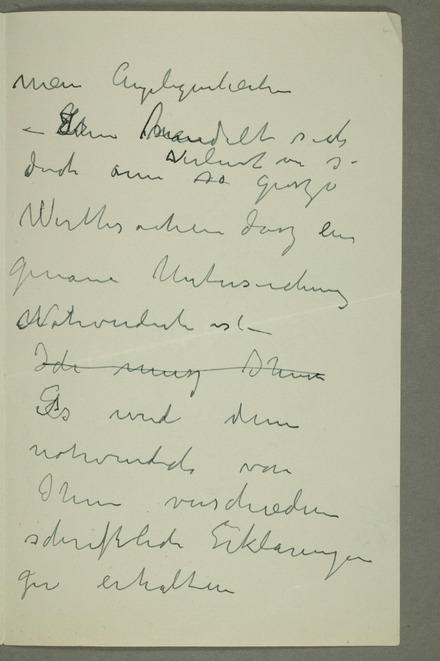 mein Angelegenheiten
– Denn handelt sich
Verlust von s
doch um so große
Werthsachen dasz ein
genaue Untersuchung
Nothwendich ist –
Ich musz Ihnen
Es wird denn
nothwendich von
Ihnen verschieden
schriftlich Erklarungen
zu erhalten